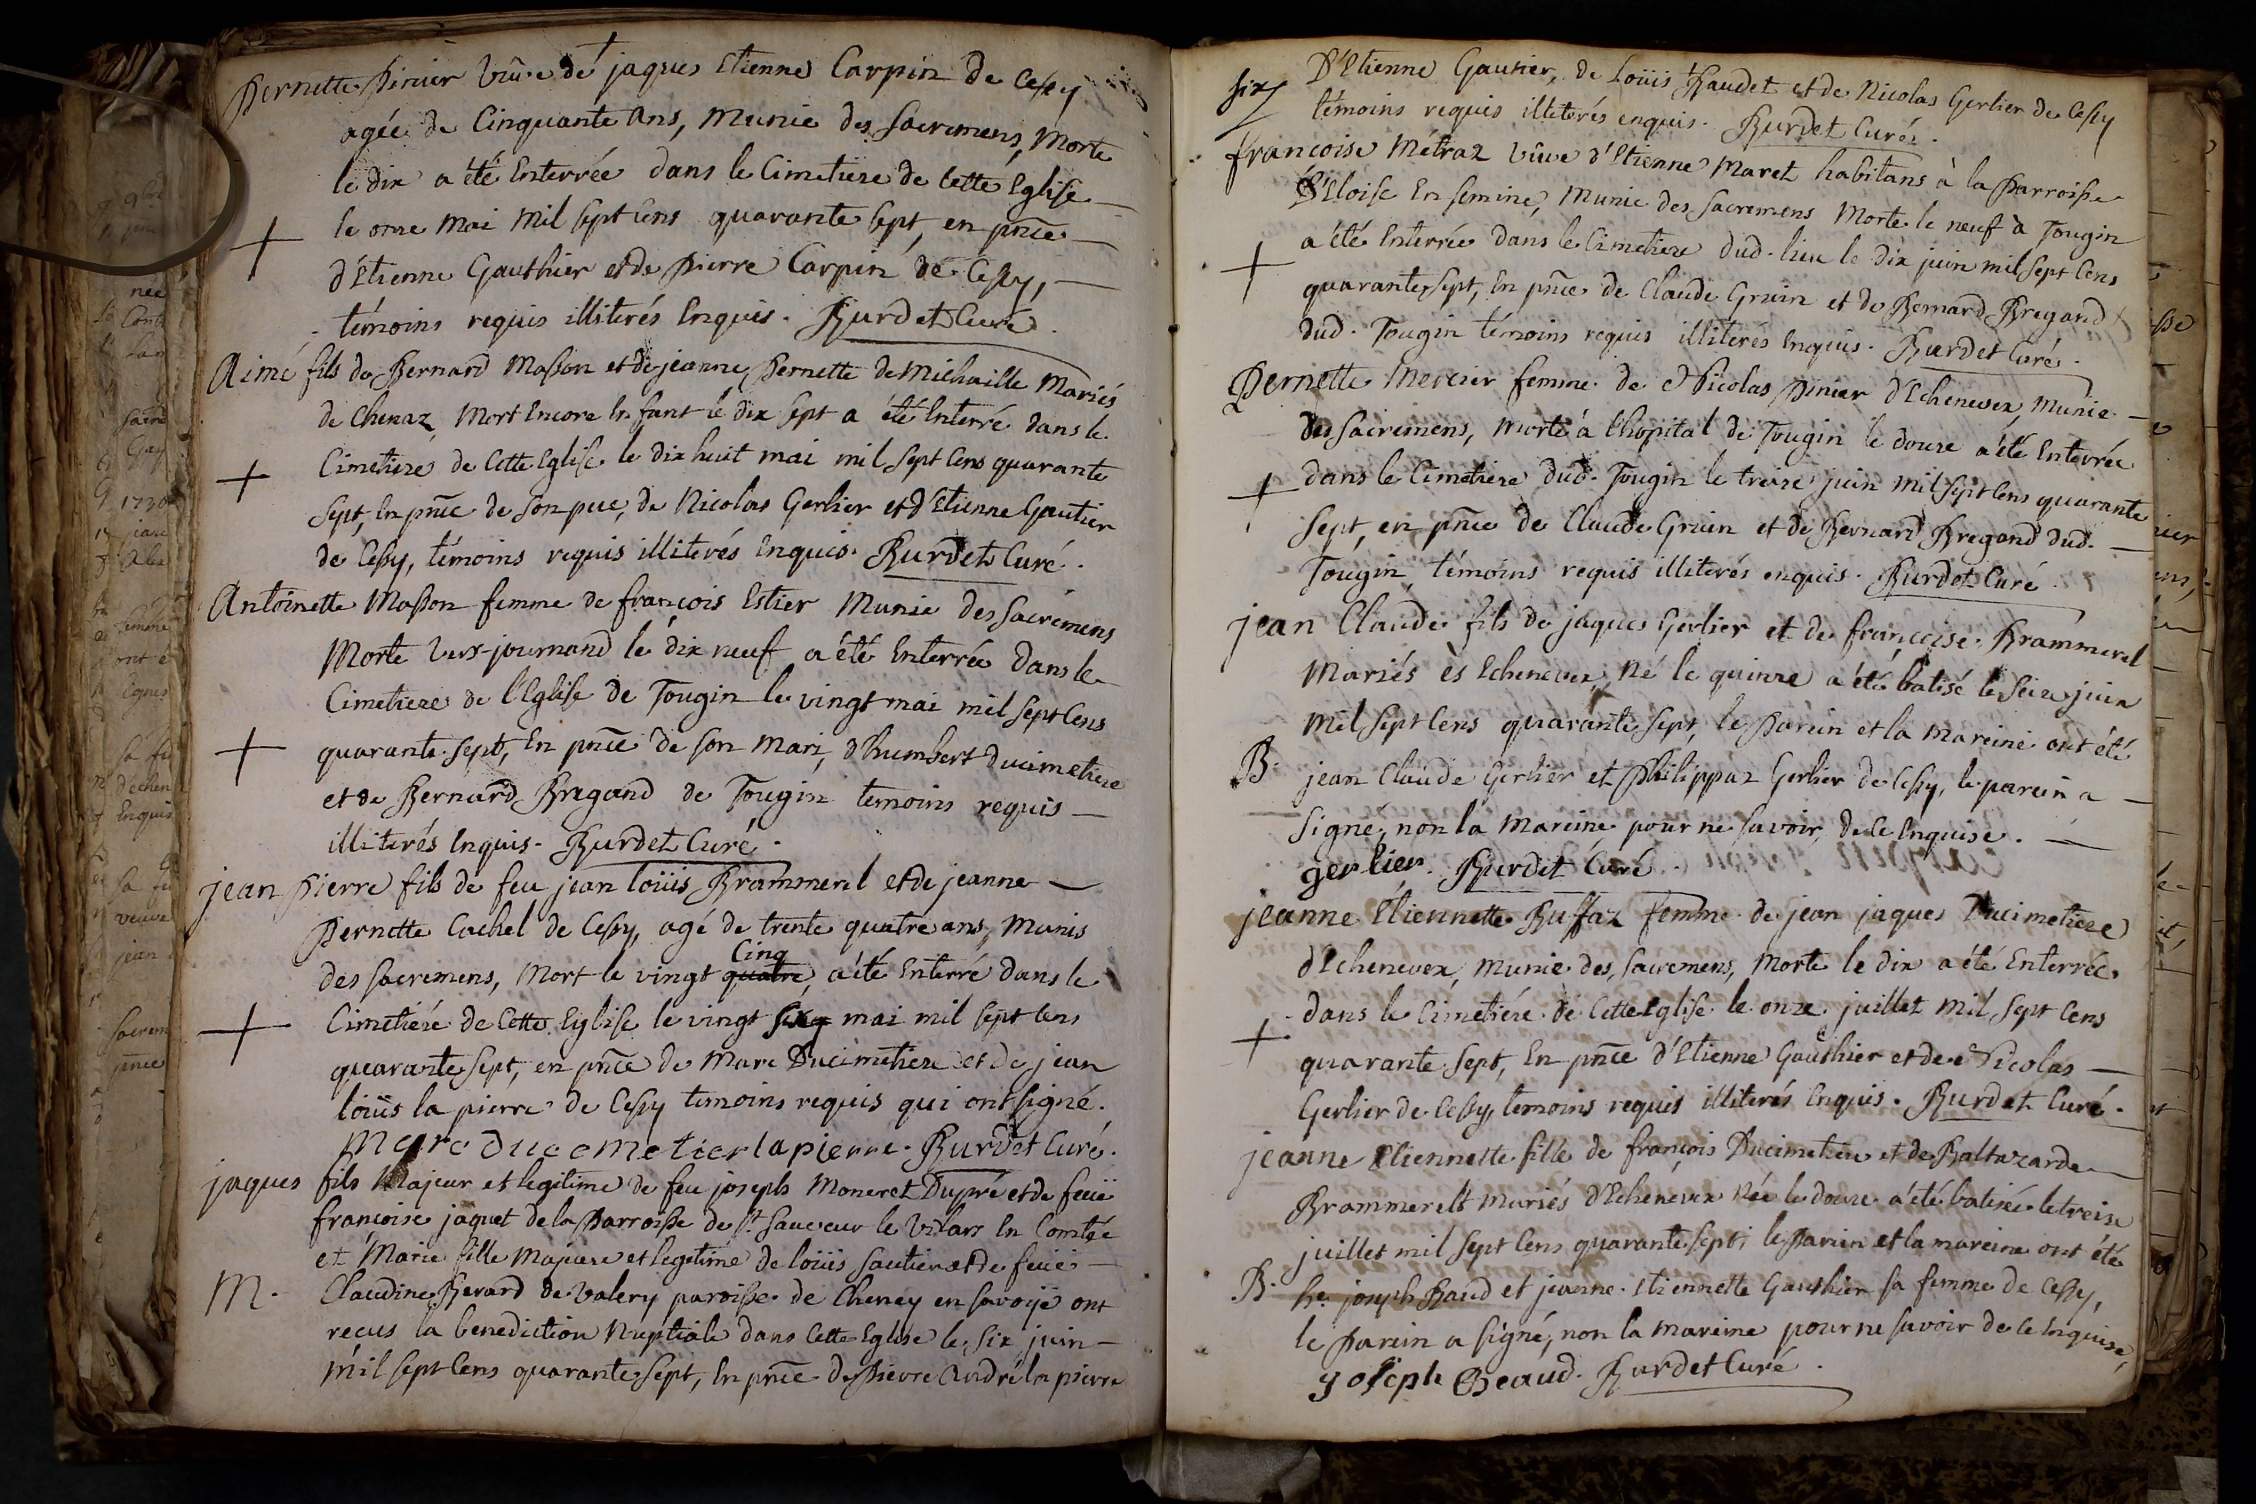 Pernette Pinier vûve de jaques Etienne Carpin de Cessy
agée de Cinquante ans, Munie des Sacremens, Morte
le dix a été Enterrée dans le Cimetiere de Cette Eglise
le onze Mai Mil Sept Cens quarante Sept, en pñce
d'Etienne Gauthier et de Pierre Carpin de Cessy,
témoins requis illiterés Enquis. Burdet Curé.
Aimé fils de Bernard Masson et de jeanne Pernette de Michaille Mariés
de Chenaz, Mort Encore Enfant le dix Sept a été Enterré dans le
Cimetiere de Cette Eglise le dix huit mai mil Sept Cens quarante
Sept, En pñce de Son pere, de Nicolas Gerlier et d'Etienne Gautier
de Cessy, témoins requis illiterés Enquis. Burdet Curé.
Antoinette Masson femme de françois Estier Munie des Sacremens
Morte Vers-journand le dix neuf a été Enterrée dans le
Cimetiere de l'Eglise de Tougin le vingt mai mil Sept Cens
quarante Sept, En pñce de Son Mari, d'humbert Ducimetiere
et de Bernard Bregand de Tougin temoins requis
illiterés Enquis. Burdet Curé.
jean Pierre fils de feu jean loüis Brammerel et de jeanne
Pernette Cachel de Cessy, agé de trente quatre ans, Munis
des Sacremens, Mort le vingt quatre Cinq, a été Enterré dans le
Cimetiére de Cette Eglise le vingt Six mai mil Sept Cens
quarante Sept, en pñce de Marc Ducimetiere et de jean
loüis la pierre de Cessy temoins requis qui ont signé.
Marc ducemetier lapierre. Burdet Curé.
jaques fils Majeur et legitime de feu joseph Moneret Dupré et de feüe
françoise jaquet de la Parroisse de St. Sauveur le Vilars En Comtée
et Marie fille Majeure et legitime de loüis Sautier et de feüe
M. Claudine Berard de Valery paroisse de Cheney en Savoÿe ont
reçus la benediction Nuptiale dans Cette Eglise le Six juin
mil Sept Cens quarante Sept, En pñce de Pierre André la pierre
six D'Etienne Gautier, de Loüis Baudet et de Nicolas Gerlier de Cessy
témoins requis illiterés enquis. Burdet Curé.
francoise Métraz vûve d'Etienne Maret habitans à la Parroisse
D'Eloise En Semine, Munie des Sacremens Morte le neuf à Tougin
a été Enterrée dans le Cimetiere dud. lieu le dix juin mil Sept Cens
quarante Sept, En pñce de Claude Gruin et de Bernard Bregand
dud. Tougin témoins requis illiterés Enquis. Burdet Curé.
Pernette Mercier femme de Nicolas Pinier d'Echenevex, Munie
des Sacremens, Morte à l'hopital de Tougin le douze a été Enterrée
dans le Cimetiere dud. Tougin le treize juin mil Sept Cens quarante
Sept, en pñce de Claude Gruin et de Bernard Bregand dud.
Tougin, témoins requis illiterés enquis. Burdet Curé.
jean Claude fils de jaques Gerlier et de françoise Brammerel
Mariés ès Echenevex, Né le quinze a été batisé le Seize juin
Mil Sept Cens quarante Sept, le Parein et la Mareine ont été
B. jean Claude Gerlier et Philippaz Gerlier de Cessy, le parein a
Signe, non la Mareine pour ne Savoir, de Ce Enquise.
gerlier. Burdet Curé.
jeanne Etiennette Buffaz femme de jean jaques Ducimetiere
d'Echenevex, Munie des Sacremens, Morte le dix a été Enterrée
dans le Cimetiére de Cette Eglise le onze juillet Mil Sept Cens
quarante Sept, En pñce d'Etienne Gauthier et de Nicolas
Gerlier de Cessy, temoins requis illiterés Enquis. Burdet Curé.
jeanne Etiennette fille de françois Ducimetiere et de Baltazarde
Brammerelt Mariés d'Echenevex Née le douze a été batisée le treize
juillet mil Sept Cens quarante Sept, le Parein et la mareine ont été
B. he. joseph Baud et jeanne Etiennette Gauthier sa femme de Cessy,
le Parein a Signé, non la Mareine pour ne Savoir de Ce Enquise,
yoseph Beaud. Burdet Curé.